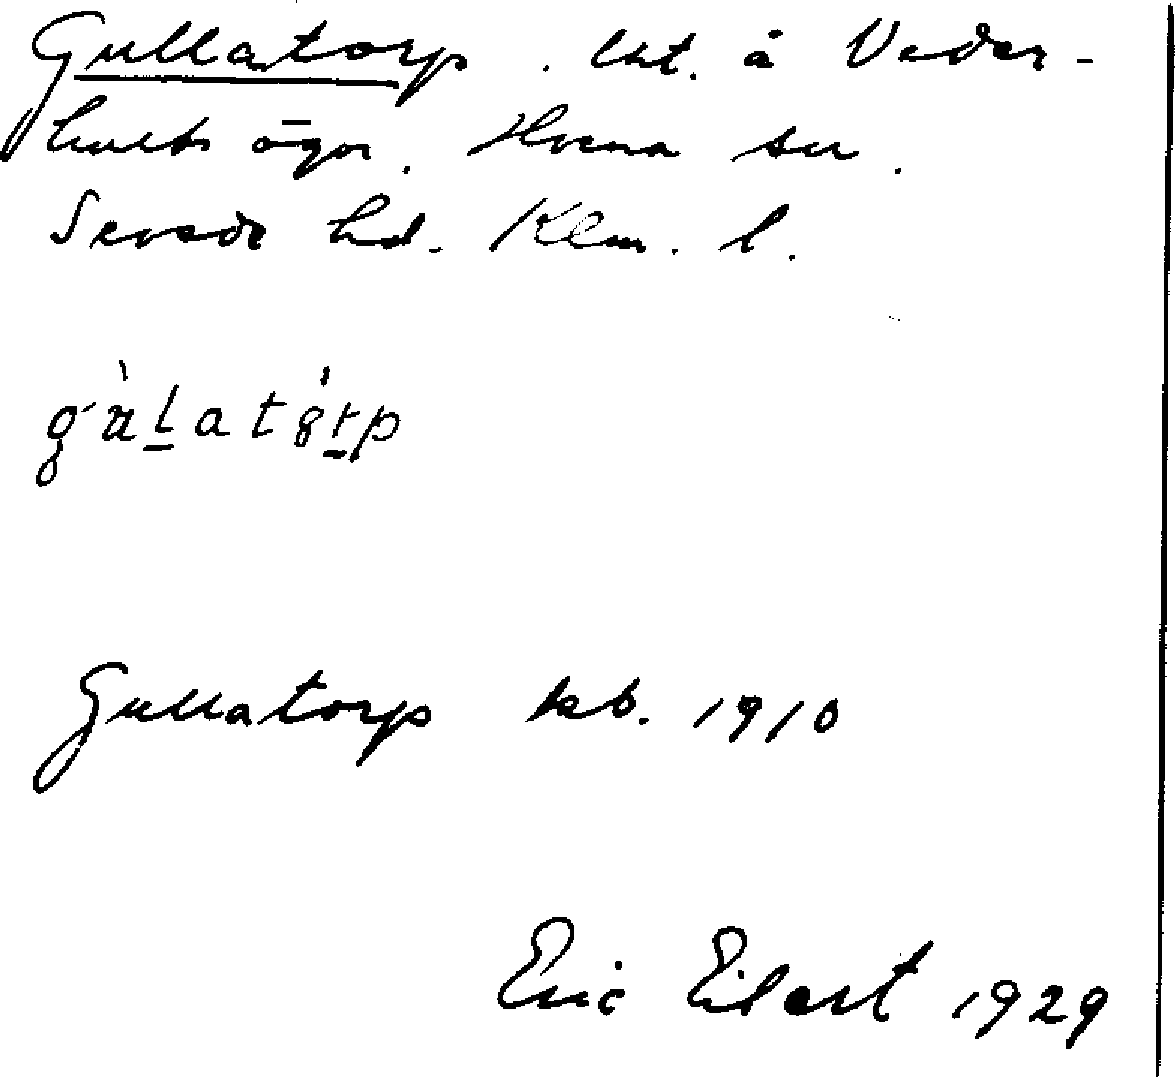 Gullatorp. lht. å Veder-
hults ägor. Hvena sn.
Sevede hd. Klm. l.
gùl̲ató̤r̲p
Gullatorp kb. 1910
Eric Eilert 1929